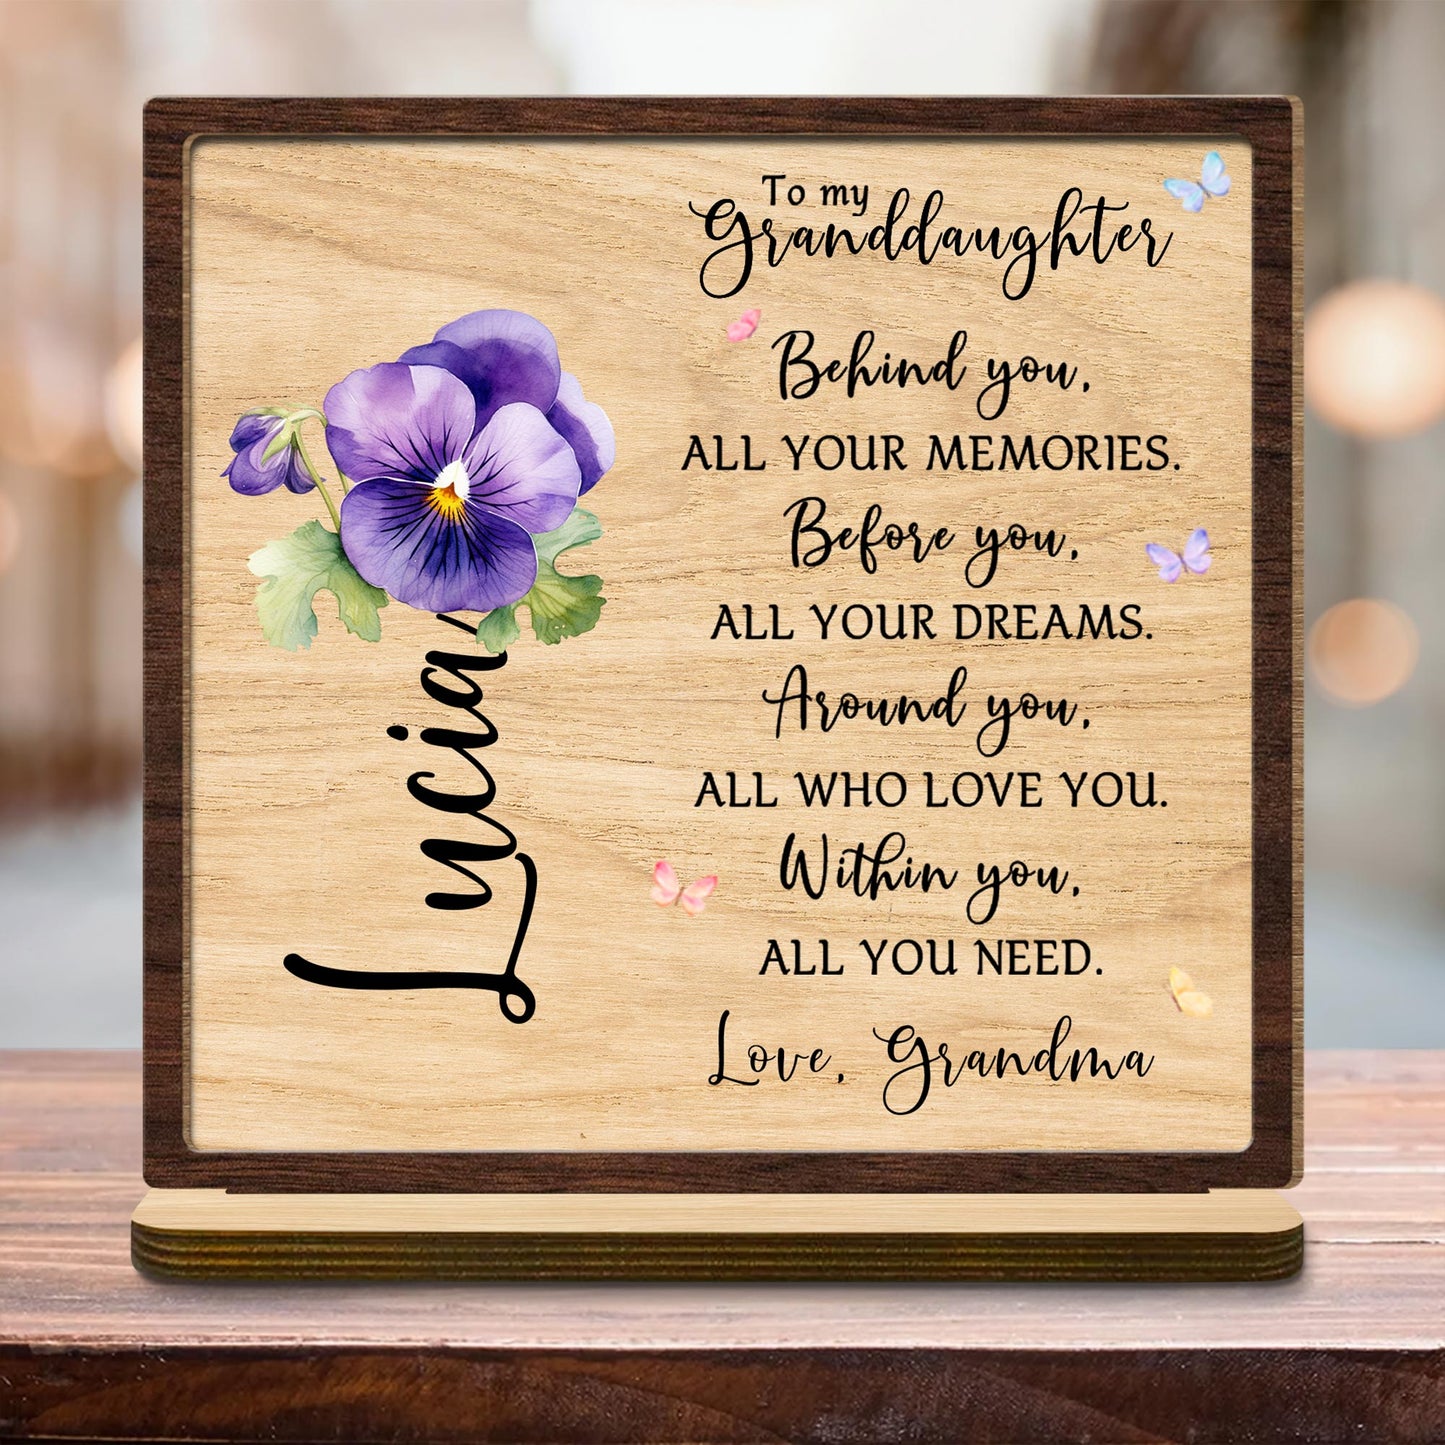 Lycia
To my
Granddaughter
Behind you,
ALL YOUR MEMORIES.
Before you,
ALL YOUR DREAMS.
Around you,
ALL WHO LOVE YOU.
Within you,
ALL YOU NEED.
Love, Grandma